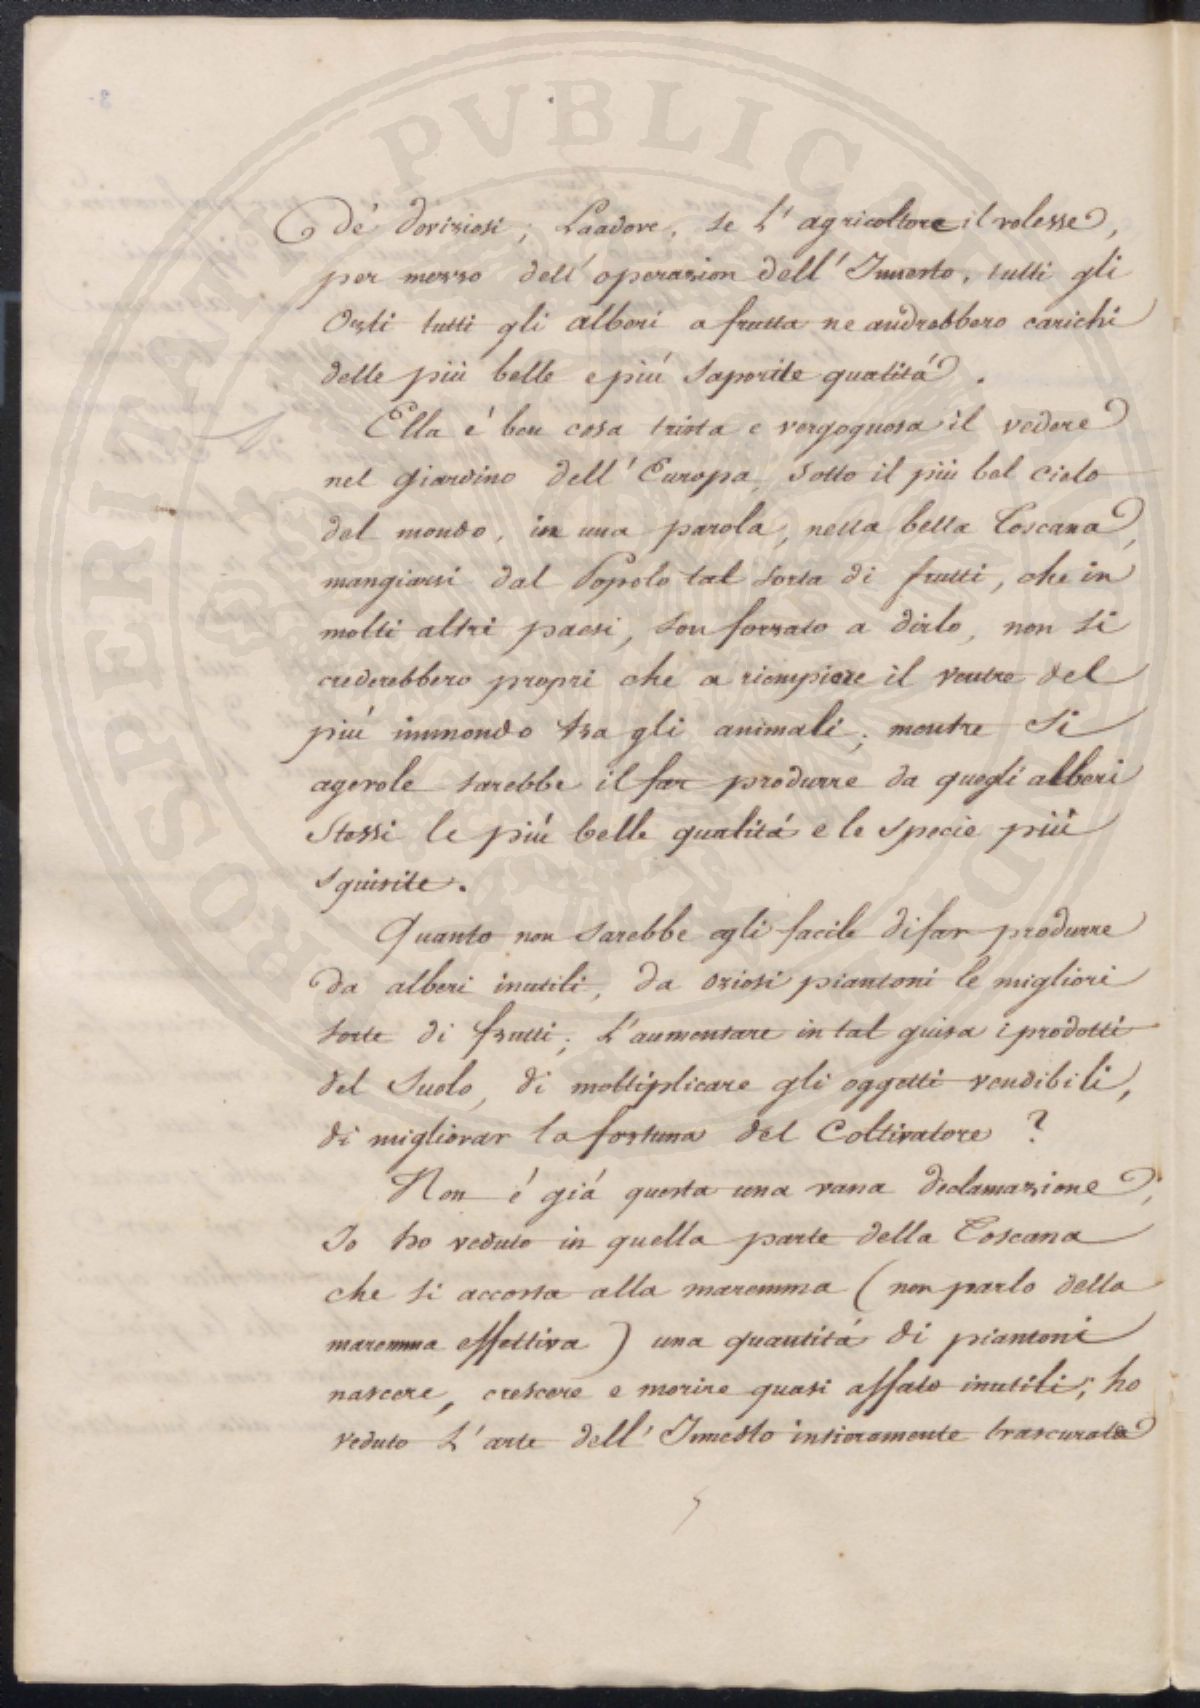 dé doviziosi; Laadove, se l'agricoltore il volesse,
per mezzo dell'operazion dell'Innesto, tutti gli
Orti tutti gli alberi a frutta ne andrebbero carichi
delle più belle e più saporite qualitá.
Ella é ben cosa trista e vergognosa il vedere
nel giardino dell'Europa, sotto il più bel cielo
del mondo, in una parola, nella bella Toscana,
mangiarsi dal Popolo tal sorta di frutti, che in
molti altri paesi, son forzato a dirlo, non si
crederebbero propri che a riempiere il ventre del
piú immondo tra gli animali; mentre si
agevole sarebbe il far produrre da quegli alberi
stessi le piú belle qualitá e le specie più
squisite.
Quanto non sarebbe egli facile di far produrre
da alberi inutili, da oziosi piantoni le migliori
sorte di frutti; L'aumentare in tal guisa i prodotti
del Suolo, di moltiplicare gli oggetti vendibili,
di migliorar la fortuna del Coltivatore?
Non é giá questa una vana declamazione,
Io ho veduto in quella parte della Toscana
che si accosta alla maremma (non parlo della
maremma effettiva) una quantitá di piantoni
nascere, crescere e morire quasi affato inutili; ho
veduto L'arte dell'Innesto intieramente trascurata
PVBLICAE
PROSPERITATI